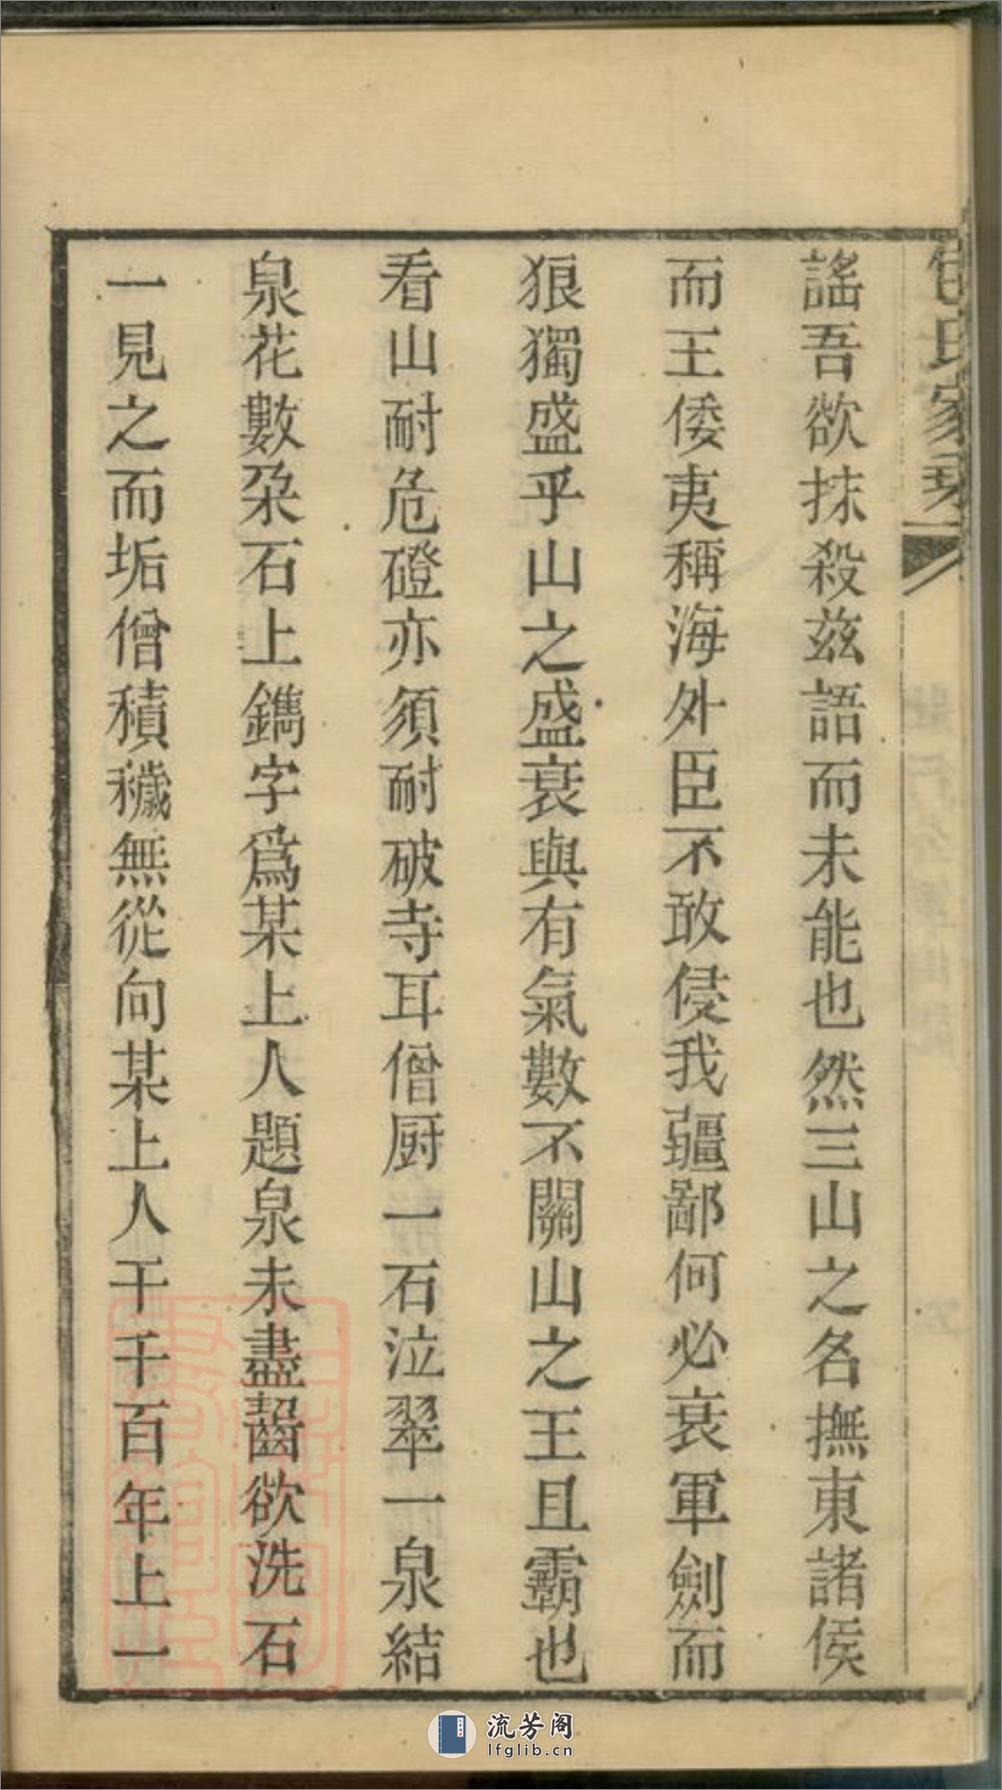 謠吾欲抹殺茲語而未能也然三山之名撫東諸侯
而王倭夷稱海外臣不敢侵我疆鄙何必衰軍劍而
狼獨盛乎山之盛衰與有氣數不關山之王且霸也
看山耐危磴亦須耐破寺耳僧厨一石泣翠一泉結
泉花數朶石上鐫字爲某上人題泉未盡齧欲洗石
一見之而垢僧積穢無從向某上人干千百年上一
流芳阁
lfglib.cn